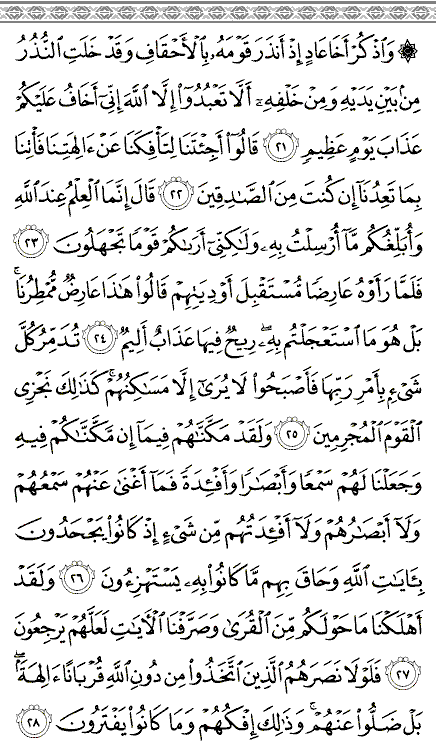 ۞ وَٱذْكُرْ أَخَا عَادٍ إِذْ أَنذَرَ قَوْمَهُۥ بِٱلْأَحْقَافِ وَقَدْ خَلَتِ ٱلنُّذُرُ
مِنۢ بَيْنِ يَدَيْهِ وَمِنْ خَلْفِهِۦٓ أَلَّا تَعْبُدُوٓا۟ إِلَّا ٱللَّهَ إِنِّىٓ أَخَافُ عَلَيْكُمْ
عَذَابَ يَوْمٍ عَظِيمٍ ٢١ قَالُوٓا۟ أَجِئْتَنَا لِتَأْفِكَنَا عَنْ ءَالِهَتِنَا فَأْتِنَا
بِمَا تَعِدُنَآ إِن كُنتَ مِنَ ٱلصَّٰدِقِينَ ٢٢ قَالَ إِنَّمَا ٱلْعِلْمُ عِندَ ٱللَّهِ
وَأُبَلِّغُكُم مَّآ أُرْسِلْتُ بِهِۦ وَلَٰكِنِّىٓ أَرَىٰكُمْ قَوْمًا تَجْهَلُونَ ٢٣
فَلَمَّا رَأَوْهُ عَارِضًا مُّسْتَقْبِلَ أَوْدِيَتِهِمْ قَالُوا۟ هَٰذَا عَارِضٌ مُّمْطِرُنَا ۚ
بَلْ هُوَ مَا ٱسْتَعْجَلْتُم بِهِۦ ۖ رِيحٌ فِيهَا عَذَابٌ أَلِيمٌ ٢٤ تُدَمِّرُ كُلَّ
شَىْءٍۭ بِأَمْرِ رَبِّهَا فَأَصْبَحُوا۟ لَا يُرَىٰٓ إِلَّا مَسَٰكِنُهُمْ ۚ كَذَٰلِكَ نَجْزِى
ٱلْقَوْمَ ٱلْمُجْرِمِينَ ٢٥ وَلَقَدْ مَكَّنَّٰهُمْ فِيمَآ إِن مَّكَّنَّٰكُمْ فِيهِ
وَجَعَلْنَا لَهُمْ سَمْعًا وَأَبْصَٰرًا وَأَفْـِٔدَةً فَمَآ أَغْنَىٰ عَنْهُمْ سَمْعُهُمْ
وَلَآ أَبْصَٰرُهُمْ وَلَآ أَفْـِٔدَتُهُم مِّن شَىْءٍ إِذْ كَانُوا۟ يَجْحَدُونَ
بِـَٔايَٰتِ ٱللَّهِ وَحَاقَ بِهِم مَّا كَانُوا۟ بِهِۦ يَسْتَهْزِءُونَ ٢٦ وَلَقَدْ
أَهْلَكْنَا مَا حَوْلَكُم مِّنَ ٱلْقُرَىٰ وَصَرَّفْنَا ٱلْـَٔايَٰتِ لَعَلَّهُمْ يَرْجِعُونَ
٢٧ فَلَوْلَا نَصَرَهُمُ ٱلَّذِينَ ٱتَّخَذُوا۟ مِن دُونِ ٱللَّهِ قُرْبَانًا ءَالِهَةًۢ ۖ
بَلْ ضَلُّوا۟ عَنْهُمْ ۚ وَذَٰلِكَ إِفْكُهُمْ وَمَا كَانُوا۟ يَفْتَرُونَ ٢٨